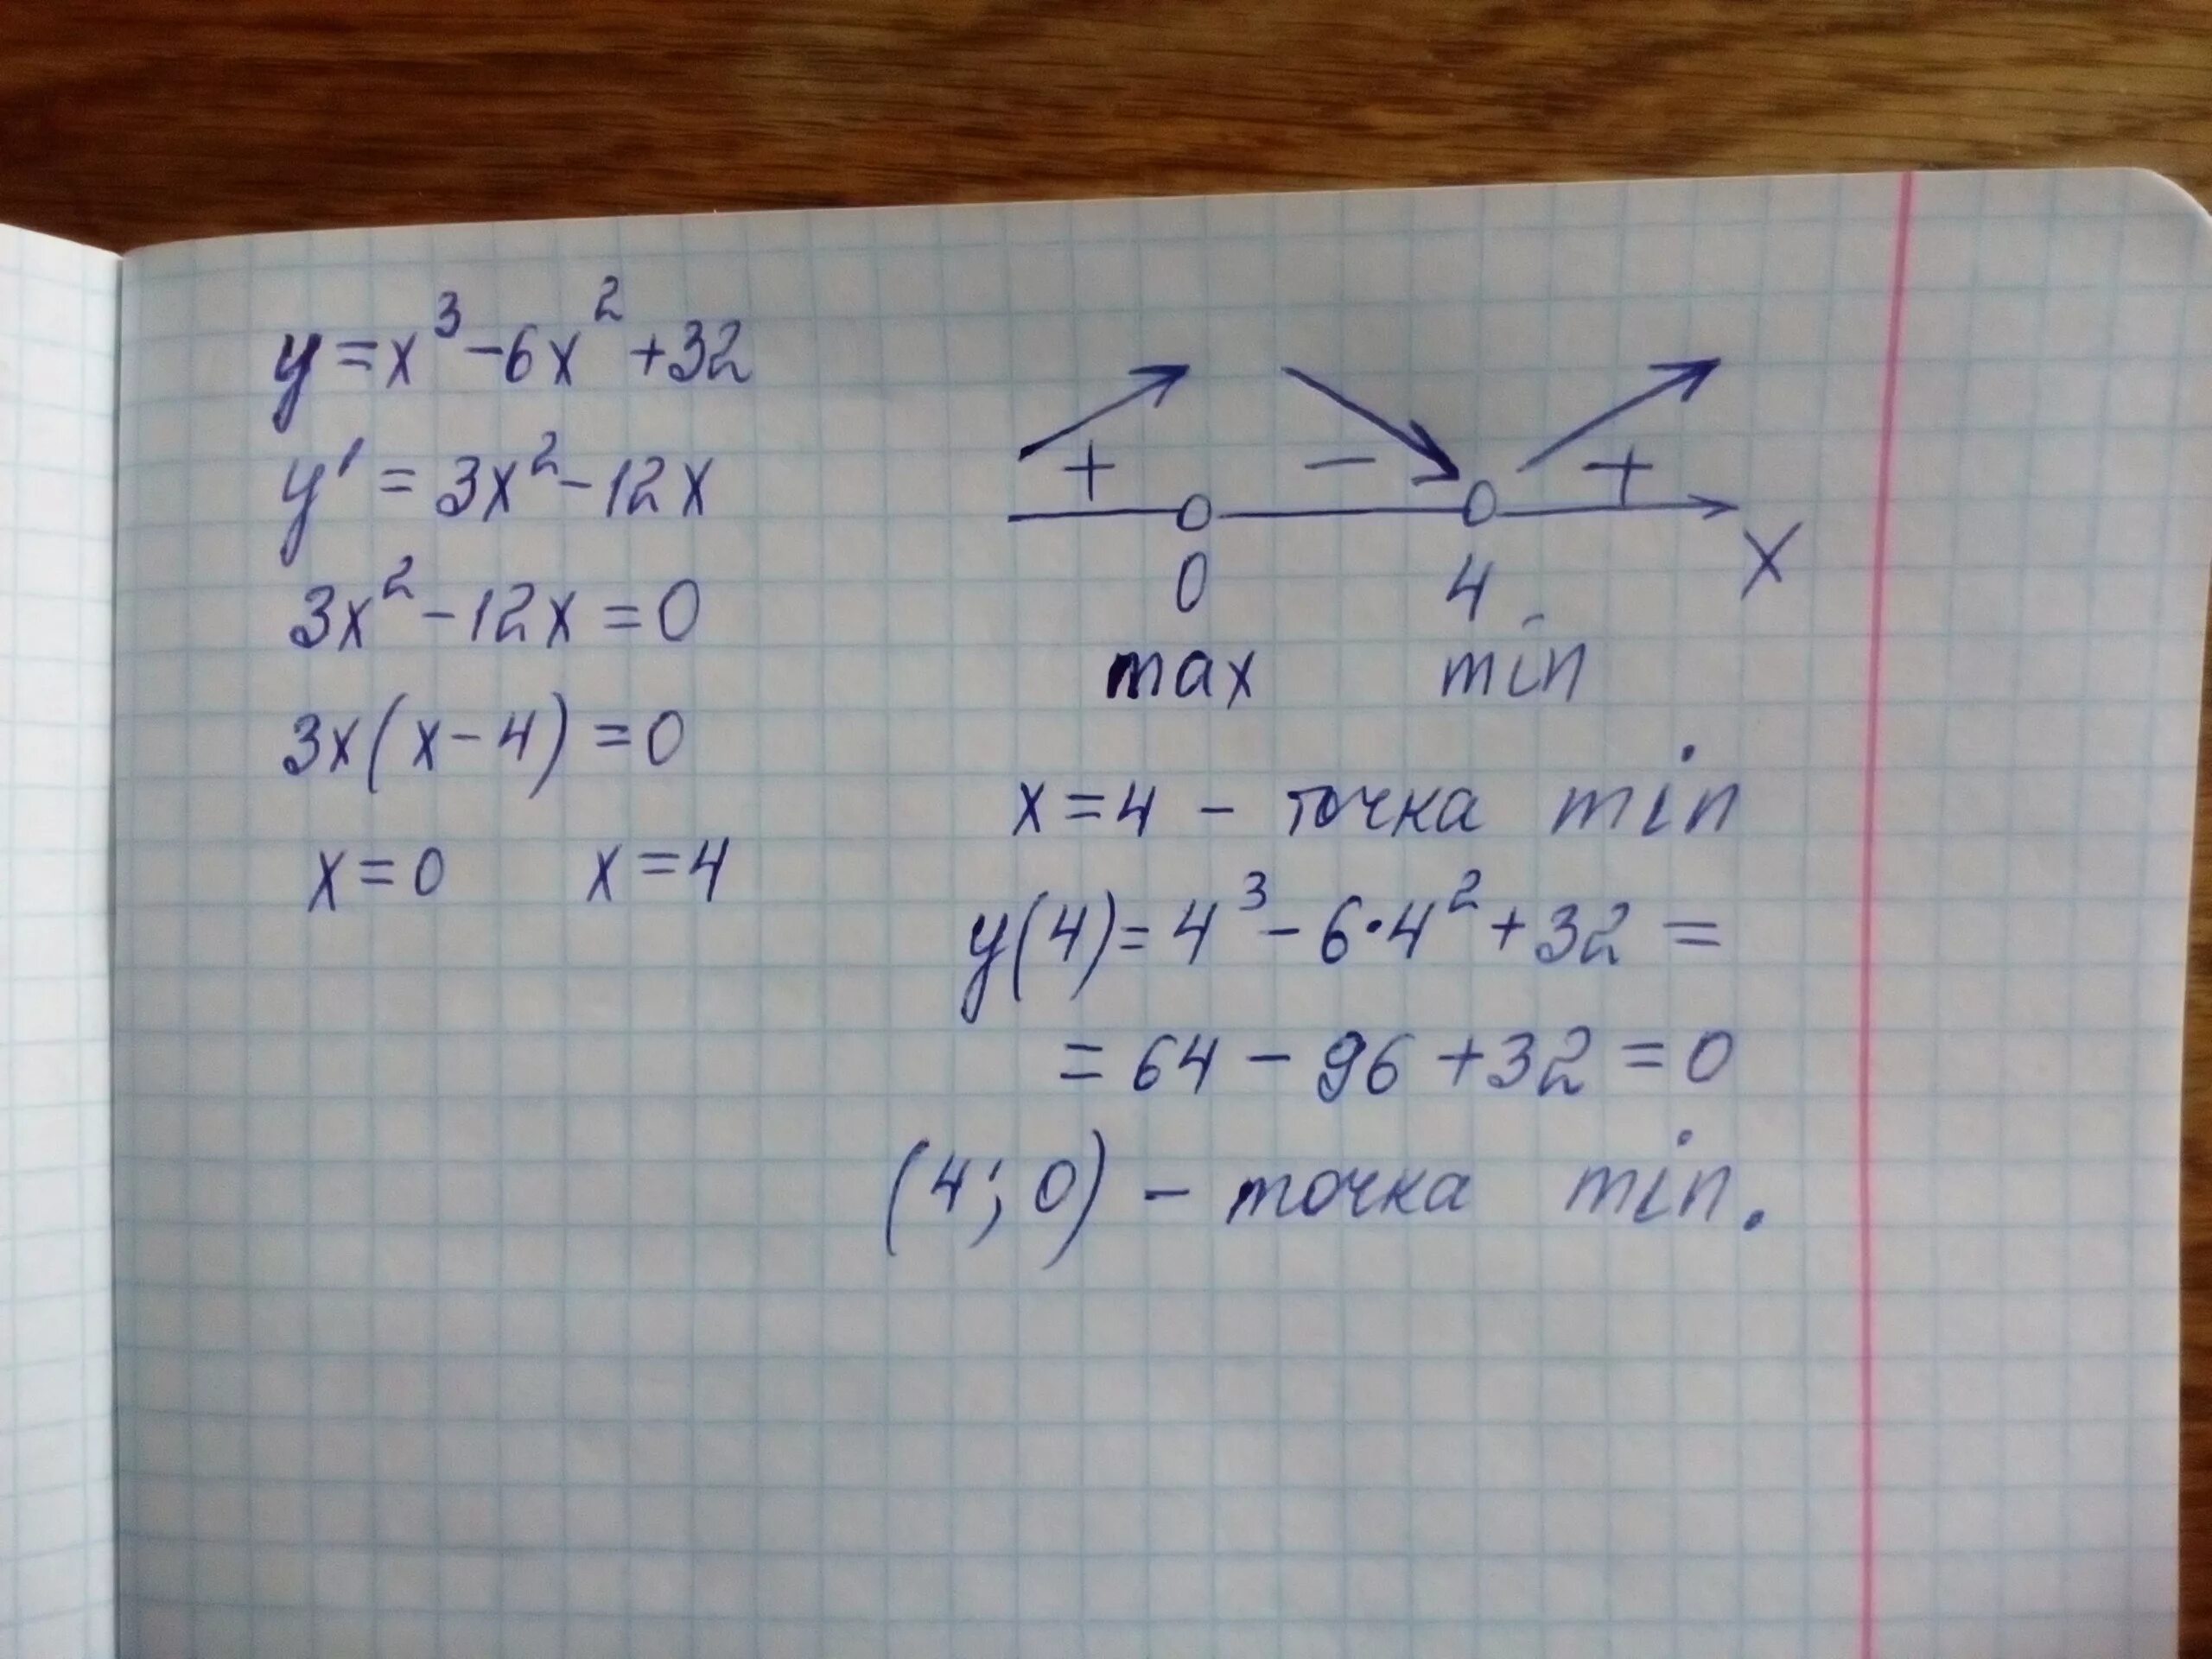 y = x³ - 6x² + 32
y' = 3x² - 12x
3x² - 12x = 0
3x(x - 4) = 0
x = 0 x = 4
+ - +
0 4 x
max min
x = 4 - точка min
y(4) = 4³ - 6·4² + 32 =
= 64 - 96 + 32 = 0
(4; 0) - точка min.